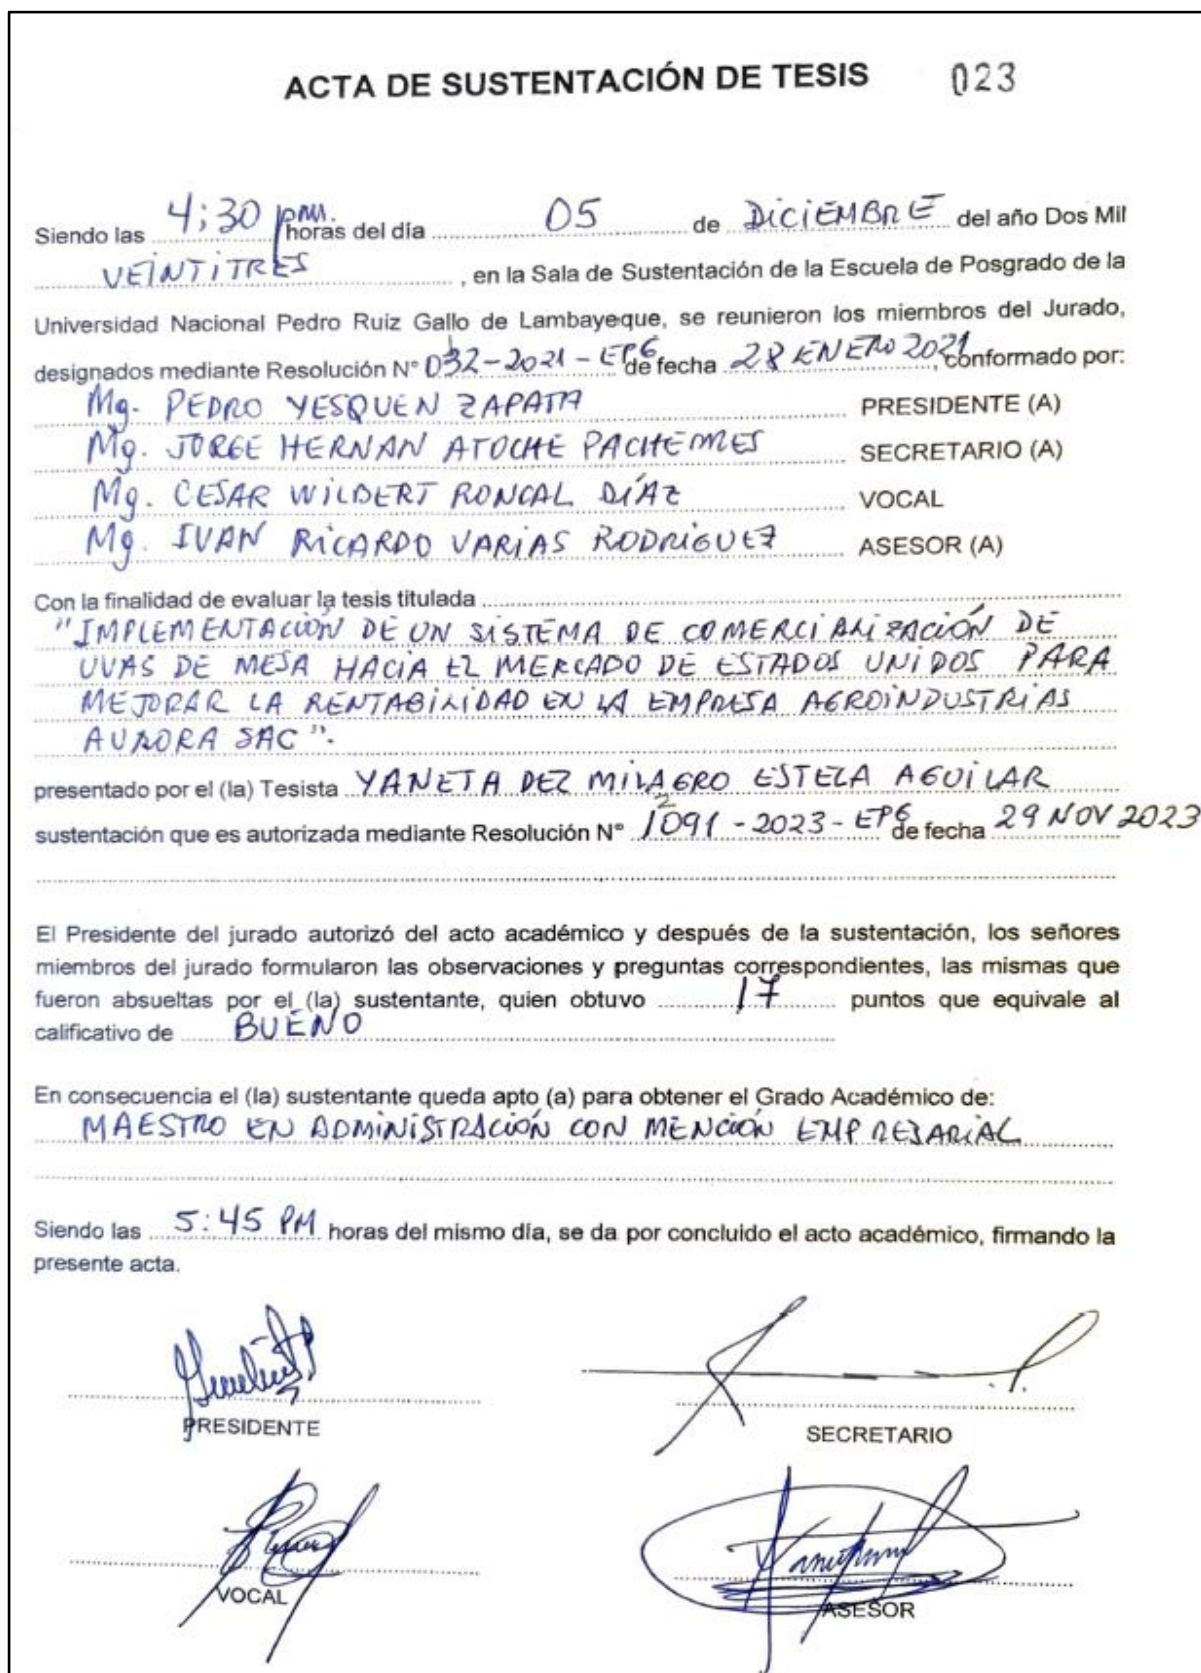 ACTA DE SUSTENTACIÓN DE TESIS 023
Siendo las 4:30 pm. horas del día 05 de DICIEMBRE del año Dos Mil
VEINTITRES, en la Sala de Sustentación de la Escuela de Posgrado de la
Universidad Nacional Pedro Ruiz Gallo de Lambayeque, se reunieron los miembros del Jurado,
designados mediante Resolución N° 032-2021-EPG de fecha 28 ENERO 2021, conformado por:
Mg. PEDRO YESQUEN ZAPATA PRESIDENTE (A)
Mg. JORGE HERNAN ATOCHE PACHERRES SECRETARIO (A)
Mg. CESAR WILBERT RONCAL DÍAZ VOCAL
Mg. IVAN RICARDO VARIAS RODRIGUEZ ASESOR (A)
Con la finalidad de evaluar la tesis titulada
"IMPLEMENTACIÓN DE UN SISTEMA DE COMERCIALIZACIÓN DE
UVAS DE MESA HACIA EL MERCADO DE ESTADOS UNIDOS PARA
MEJORAR LA RENTABILIDAD EN LA EMPRESA AGROINDUSTRIAS
AURORA SAC".
presentado por el (la) Tesista YANETA DEL MILAGRO ESTELA AGUILAR
sustentación que es autorizada mediante Resolución N° 1091-2023-EPG de fecha 29 NOV 2023
El Presidente del jurado autorizó del acto académico y después de la sustentación, los señores
miembros del jurado formularon las observaciones y preguntas correspondientes, las mismas que
fueron absueltas por el (la) sustentante, quien obtuvo 17 puntos que equivale al
calificativo de BUENO
En consecuencia el (la) sustentante queda apto (a) para obtener el Grado Académico de:
MAESTRO EN ADMINISTRACIÓN CON MENCIÓN EMPRESARIAL
Siendo las 5:45 PM horas del mismo día, se da por concluido el acto académico, firmando la
presente acta.
PRESIDENTE
SECRETARIO
VOCAL
ASESOR